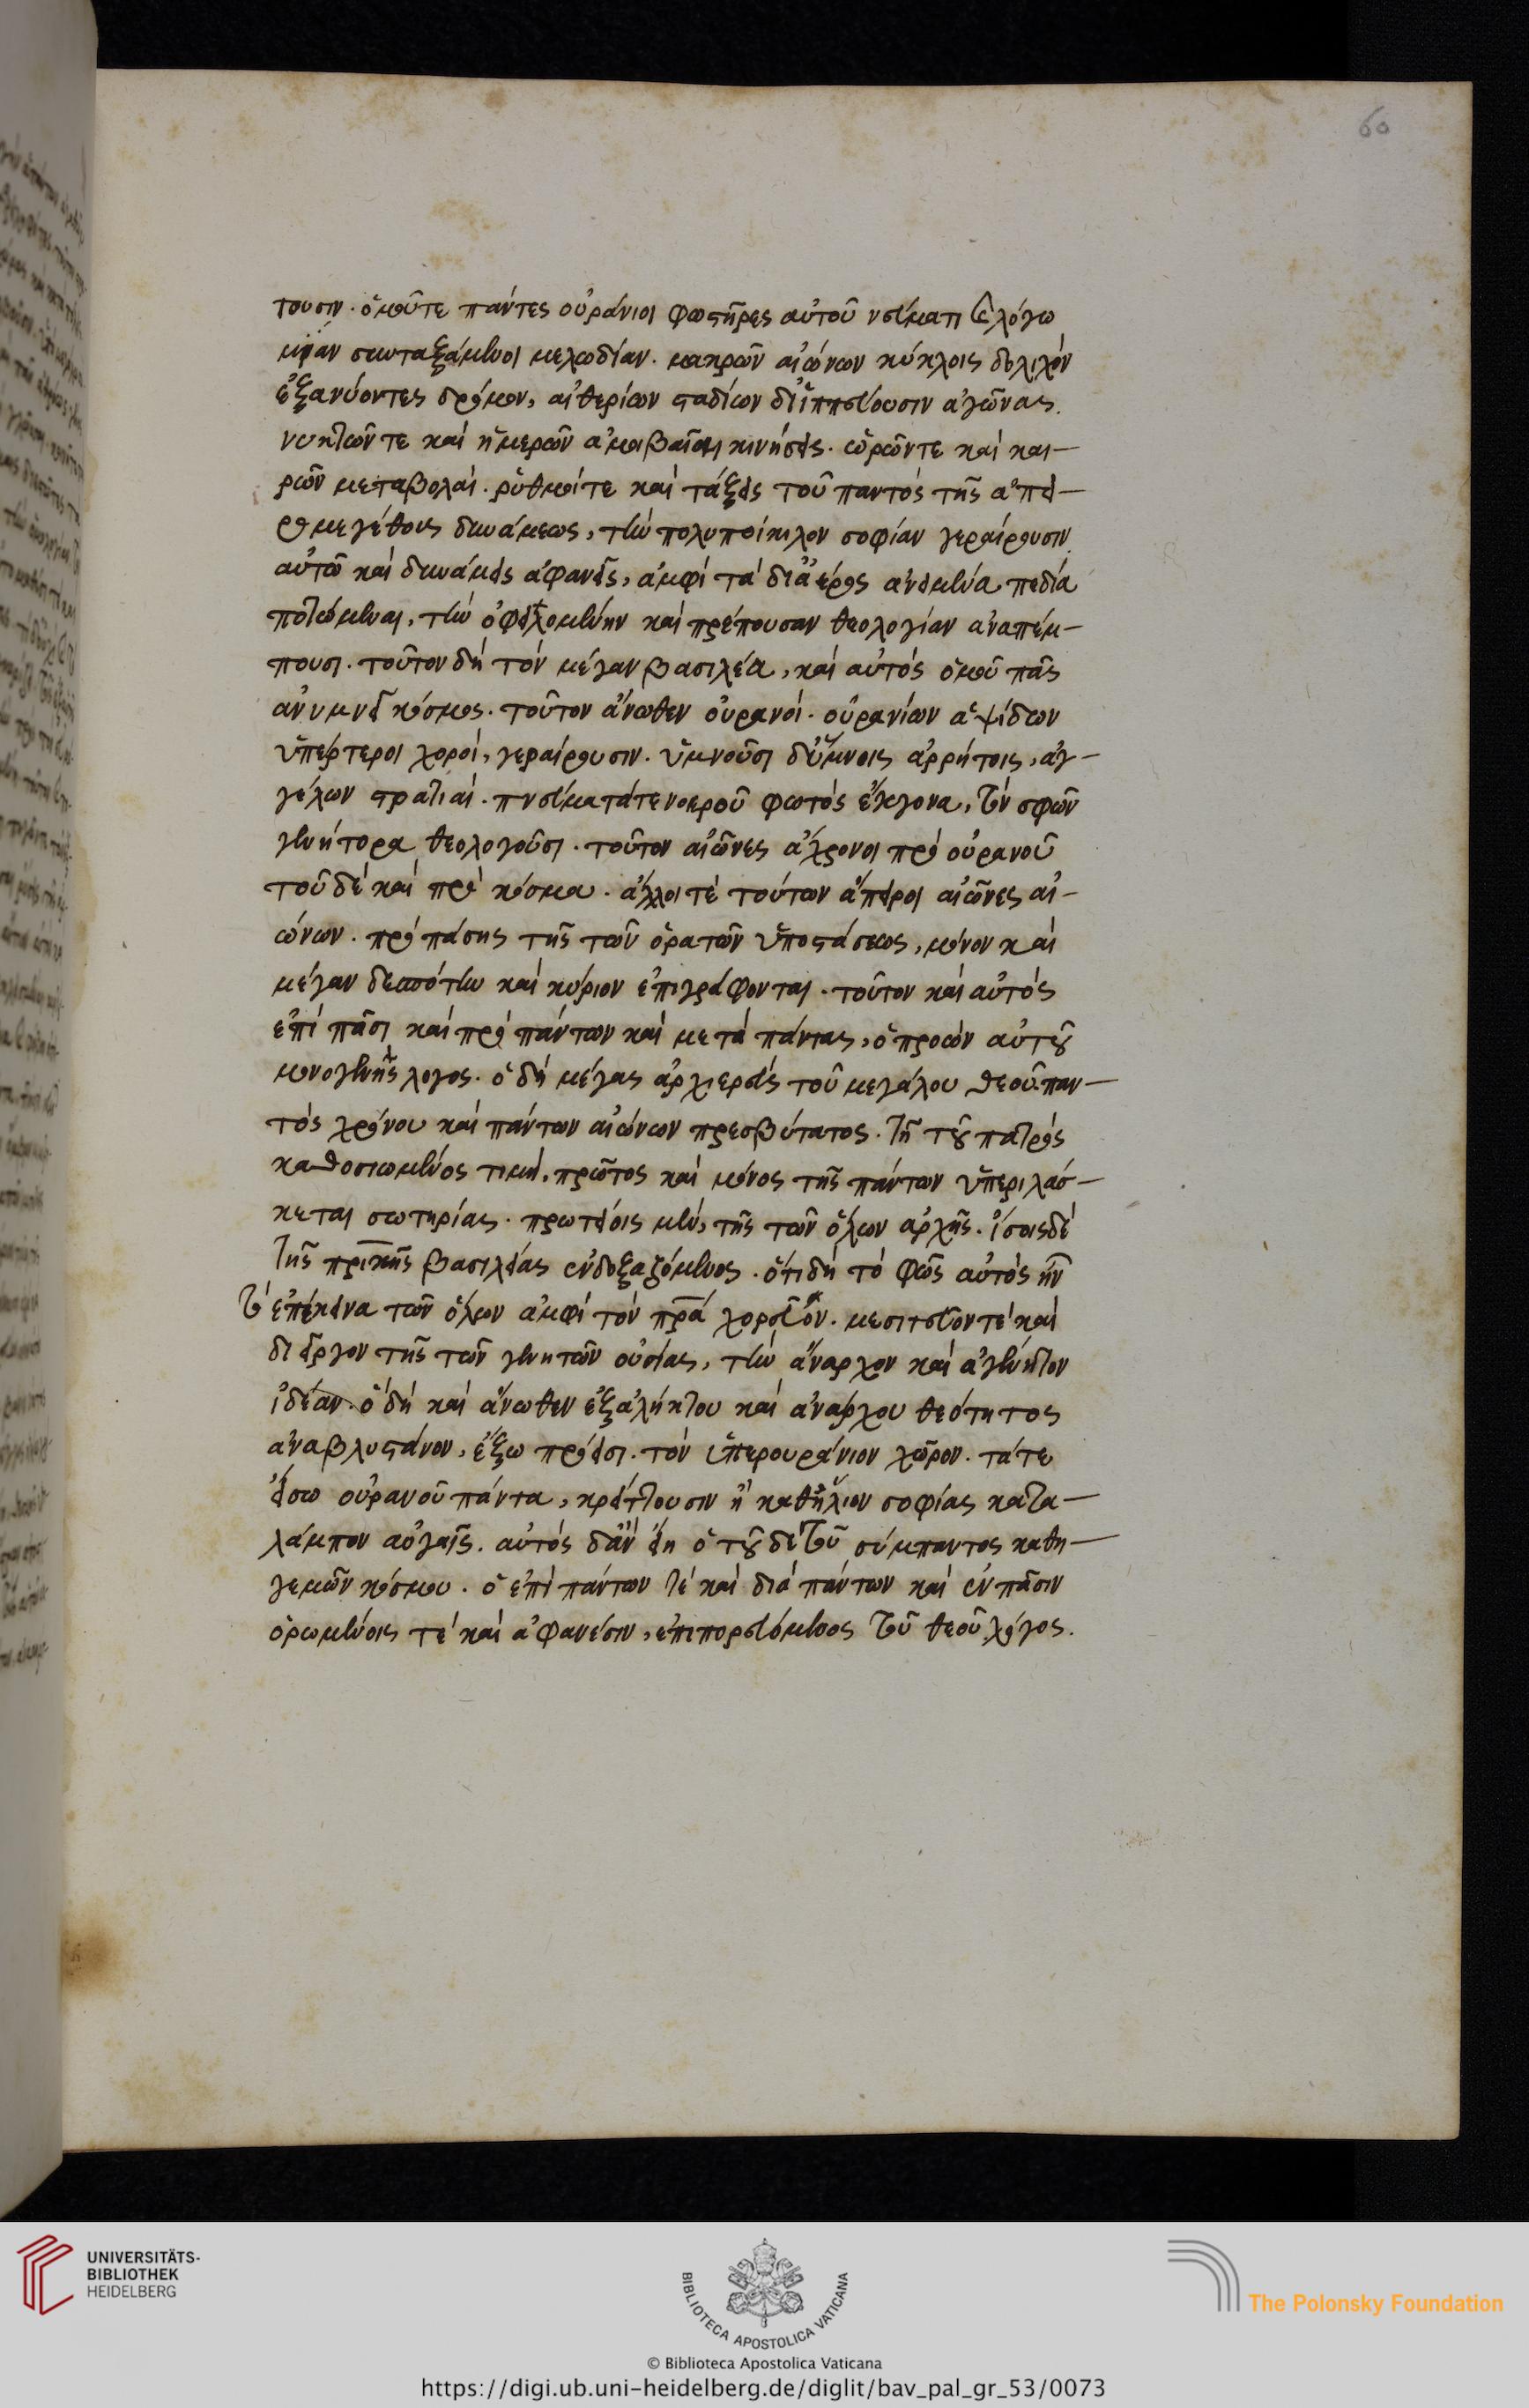 60
τουσιν. ὁμοῦτε πάντες οὐράνιοι φωστῆρες αὐτοῦ νεύματι καὶ λόγω
μίαν συνταξάμενοι μελωδίαν. μακρῶν αἰώνων κύκλοις δολιχὸν
ἐξανύοντες δρόμον, αἰθερίων σταδίων διϊππεύουσιν ἀγῶνας.
νυκτῶν τε καὶ ἡμερῶν ἀμοιβαῖαι κινήσεις. ὡρῶντε καὶ και-
ρῶν μεταβολαὶ. ῥυθμοίτε καὶ τάξεις τοῦ παντὸς τῆς ἀπεί-
ρου μεγέθους δυνάμεως, τὴν πολυποίκιλον σοφίαν γεραίρουσιν
αὐτῶ καὶ δυνάμεις ἀφανεῖς, ἀμφὶ τὰ δι ἀέρος ἀνειμένα πεδία
ποτώμεναι, τὴν ὀφειλομένην καὶ πρέπουσαν θεολογίαν ἀναπέμ-
πουσι. τοῦτον δὴ τὸν μέγαν βασιλέα, καὶ αὐτὸς ὁμοῦ πᾶς
ἀνυμνεῖ κόσμος. τοῦτον ἄνωθεν οὐρανοί. οὐρανίων ἁψίδων
ὑπέρτεροι χοροὶ, γεραίρουσιν. ὑμνοῦσι δ ὕμνοις ἀρρήτοις, ἀγ-
γέλων στρατιαὶ. πνεύματά τε νοεροῦ φωτὸς ἔκγονα, τὸν σφῶν
γεννήτορα θεολογοῦσι. τοῦτον αἰῶνες ἄχρονοι πρὸ οὐρανοῦ
τοῦδε καὶ πρὸ κόσμου. ἄλλοι τὲ τούτων ἄπειροι αἰῶνες αἰ-
ώνων. πρὸ πάσης τῆς τῶν ὁρατῶν ὑποστάσεως, μόνον καὶ
μέγαν δεσπότην καὶ κύριον ἐπιγράφονται. τοῦτον καὶ αὐτὸς
ἐπὶ πᾶσι καὶ πρὸ πάντων καὶ μετὰ πάντας, ὁ προὼν αὐτοῦ
μονογενὴς λόγος. ὁ δὴ μέγας ἀρχιερεὺς τοῦ μεγάλου θεοῦ. παν-
τὸς χρόνου καὶ πάντων αἰώνων πρεσβύτατος. τῆ τοῦ πατρὸς
καθοσιωμένος τιμῆ. πρῶτος καὶ μόνος τῆς πάντων ὑπεριλάσ-
κεται σωτηρίας. πρωτείοις μὲν, τῆς τῶν ὅλων ἀρχῆς. ἴσοις δὲ
τῆς πρικῆς βασιλείας ἐνδοξαζόμενος. ὅτι δὴ τὸ φῶς αὐτὸς ἦν
τὸ ἐπέκεινα τῶν ὅλων ἀμφὶ τὸν πρα χορεῦον. μεσιτεῦον τὲ καὶ
διεῖργον τῆς τῶν γενητῶν οὐσίας, τὴν ἄναρχον καὶ ἀγένητον
ἰδέαν. ὃ δὴ καὶ ἄνωθεν ἐξ ἀλήκτου καὶ ἀνάρχου θεότητος
ἀναβλυστάνον, ἔξω πρόεισι. τὸν ὑπερουράνιον χῶρον. τά τε
εἴσω οὐρανοῦ πάντα, κρείττουσιν ἢ καθ ἥλιον σοφίας κατα-
λάμπον αὐγαῖς. αὐτὸς δ ἂν εἴη ὁ τοῦδε τοῦ σύμπαντος καθη-
γεμῶν κόσμου. ὁ ἐπὶ πάντων τὲ καὶ διὰ πάντων καὶ ἐν πᾶσιν
ὁρωμένοις τὲ καὶ ἀφανέσιν, ἐπιπορευόμενος τοῦ θεοῦ λόγος.
UNIVERSITÄTS-
BIBLIOTHEK
HEIDELBERG
BIBLIOTECA APOSTOLICA VATICANA
The Polonsky Foundation
© Biblioteca Apostolica Vaticana
https://digi.ub.uni-heidelberg.de/diglit/bav_pal_gr_53/0073